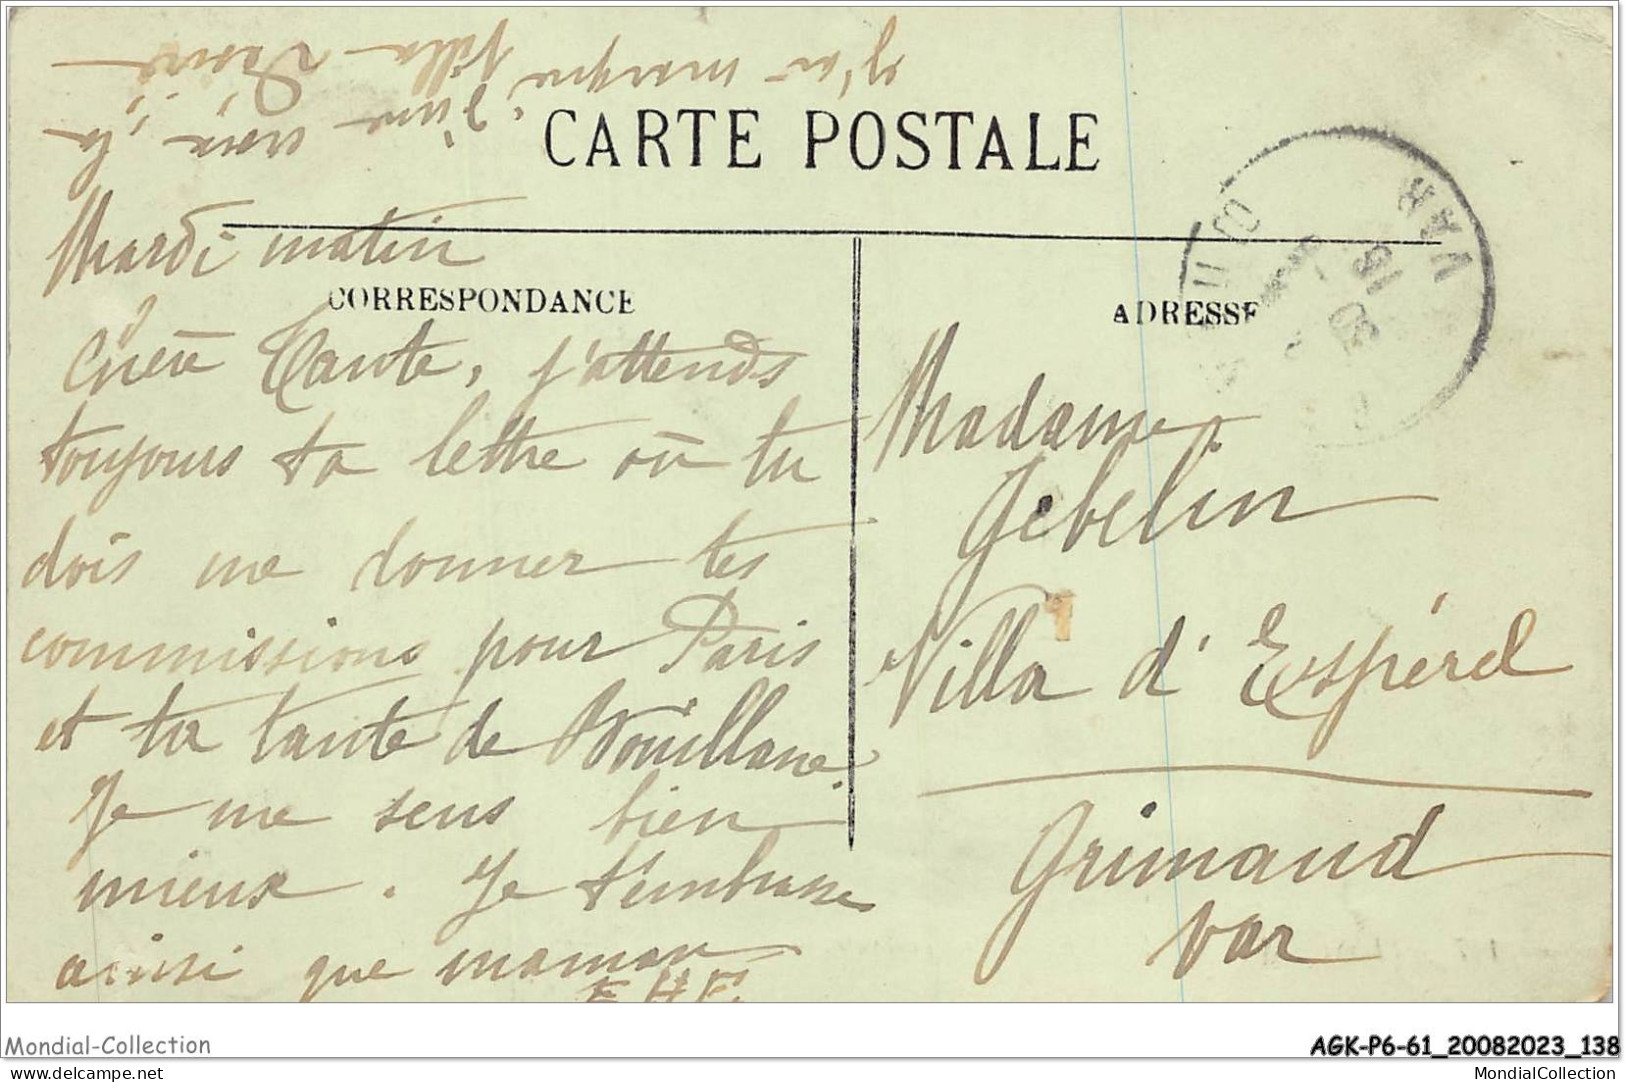 j'ai marqué
d'une
croix, la
villa Denis
CARTE POSTALE
VAR
Mardi matin
CORRESPONDANCE
Chère Tante, j'attends
toujours ta lettre où tu
dois me donner tes
commissions pour Paris
et ta tante de Bouillane.
Je me sens bien
mieux. Je t'embrasse
ainsi que maman
E.H.F.
ADRESSE
Madame
Gebelin
Villa d'Espérel
Grimaud
Var
Mondial-Collection
AGK-P6-61_20082023_138
delcampe.net
MondialCollection